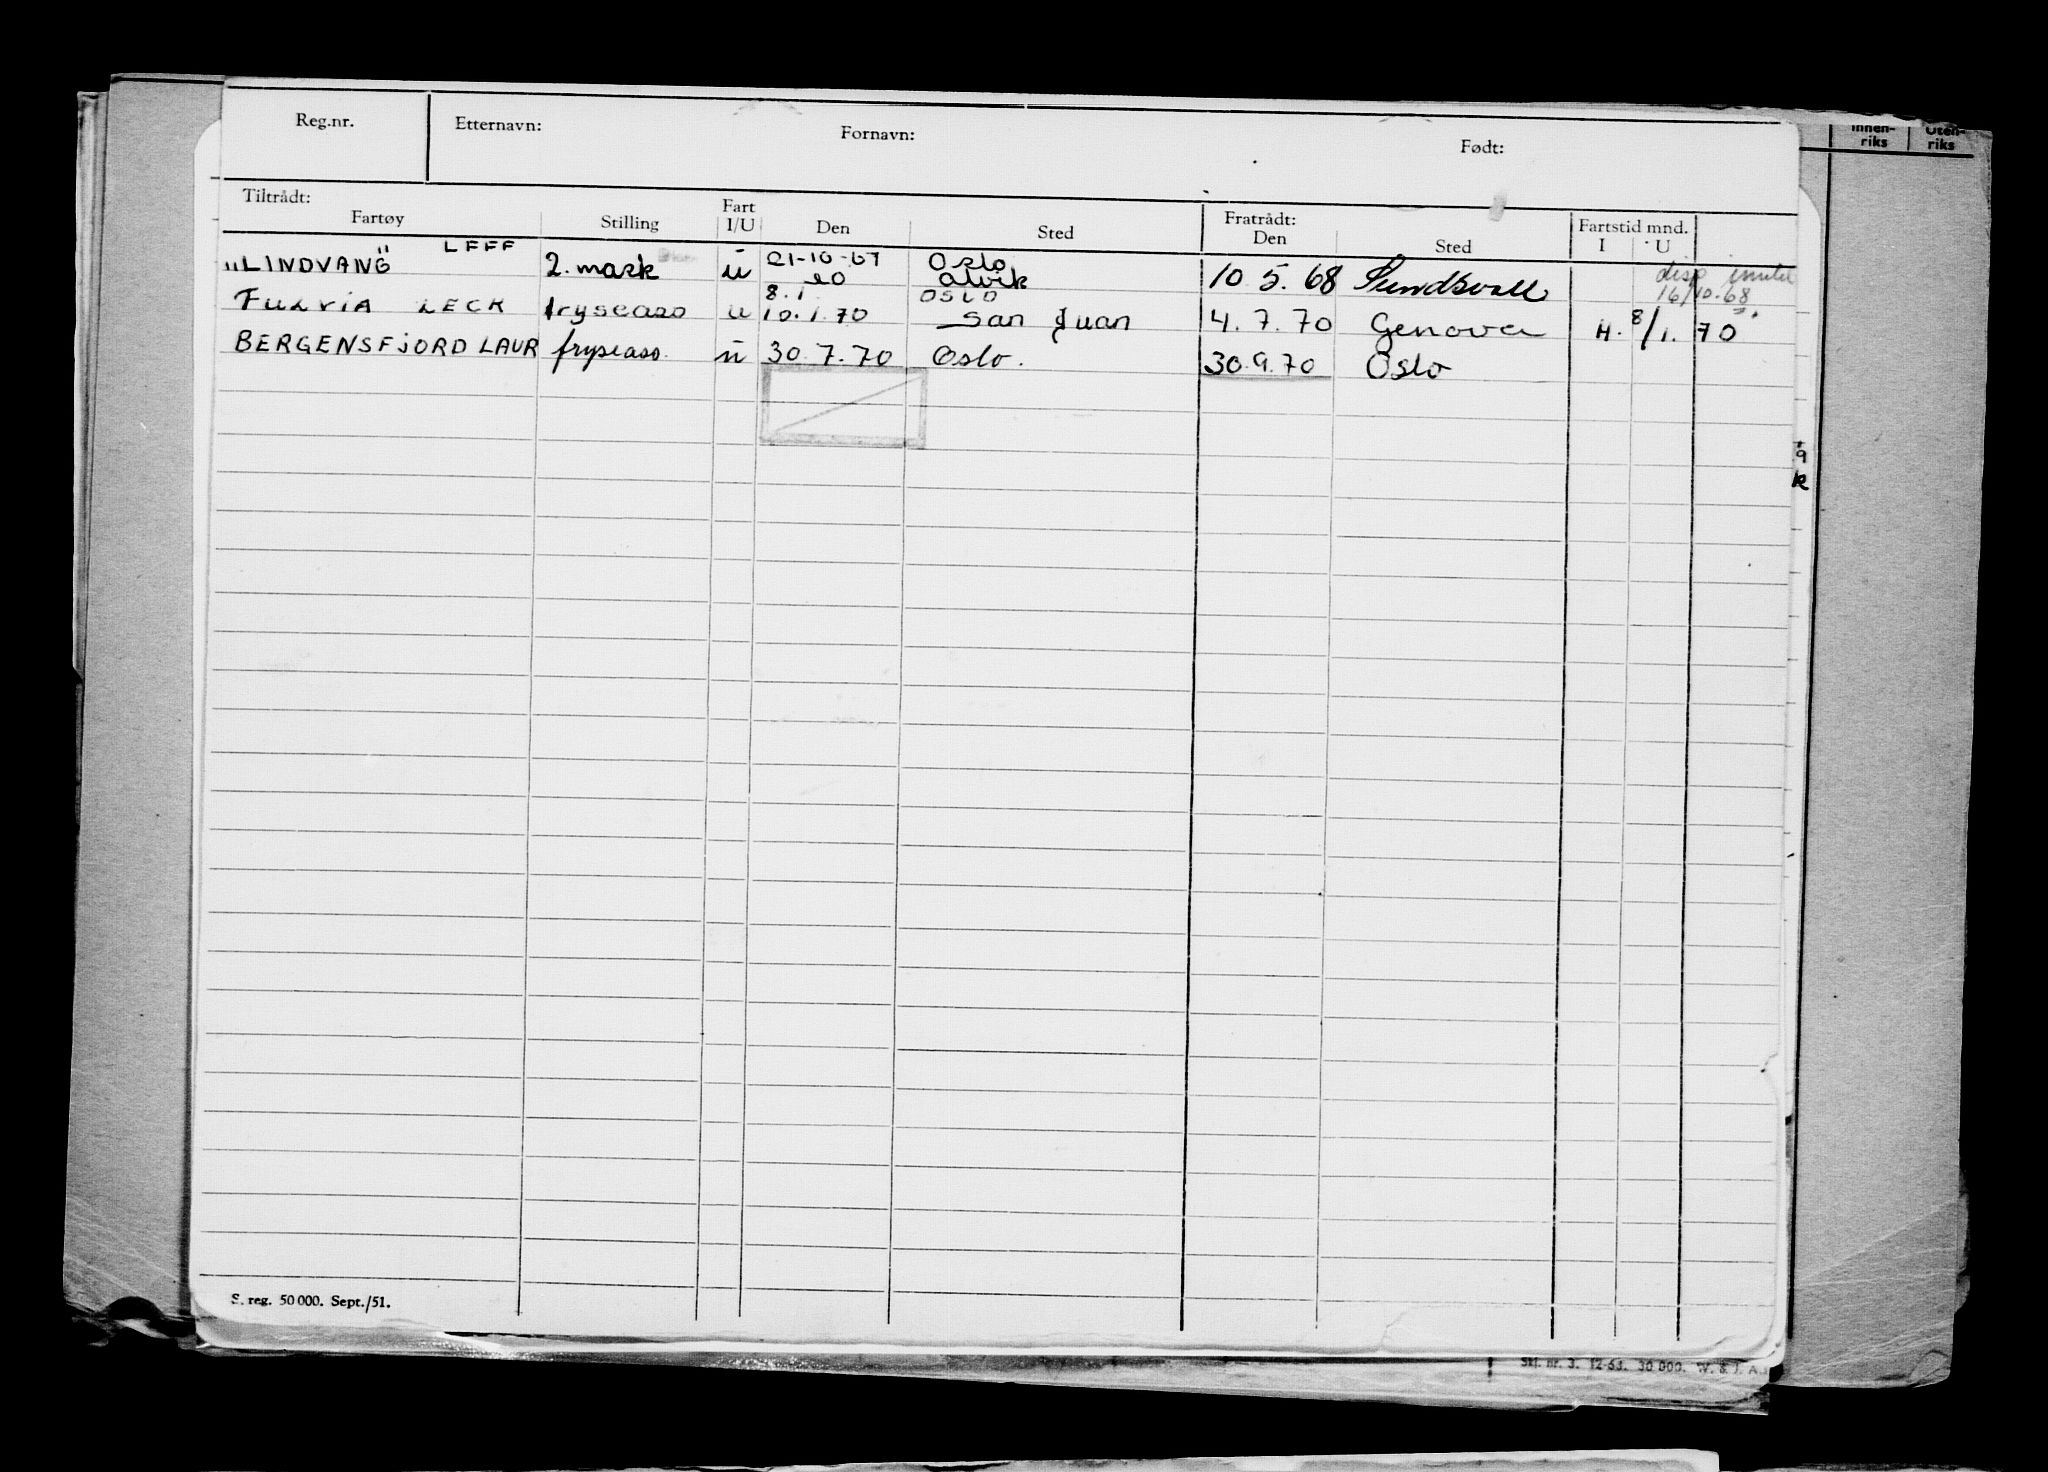 Reg.nr. Etternavn: Fornavn: Født:
Innen-riks Uten-riks
Tiltrådt: Fratrådt: Fartstid mnd.
Fartøy Stilling Fart I/U Den Sted Den Sted I U
LEFF 21-10-67 Oslo
"LINDVANG" 2. mask u 20 Alvik 10.5.68 Sundsvall disp
16/10.68
8.1 OSLO
FULVIA LECR fryseass u 10.1.70 San Juan 4.7.70 Genova H. 8/1. 70
BERGENSFJORD LAUR fryseass. u 30.7.70 Oslo. 30.9.70 Oslo
9
k
S. reg. 50 000. Sept./51.
Skj. nr. 3. 12-63. 30 000. W. & J. A.